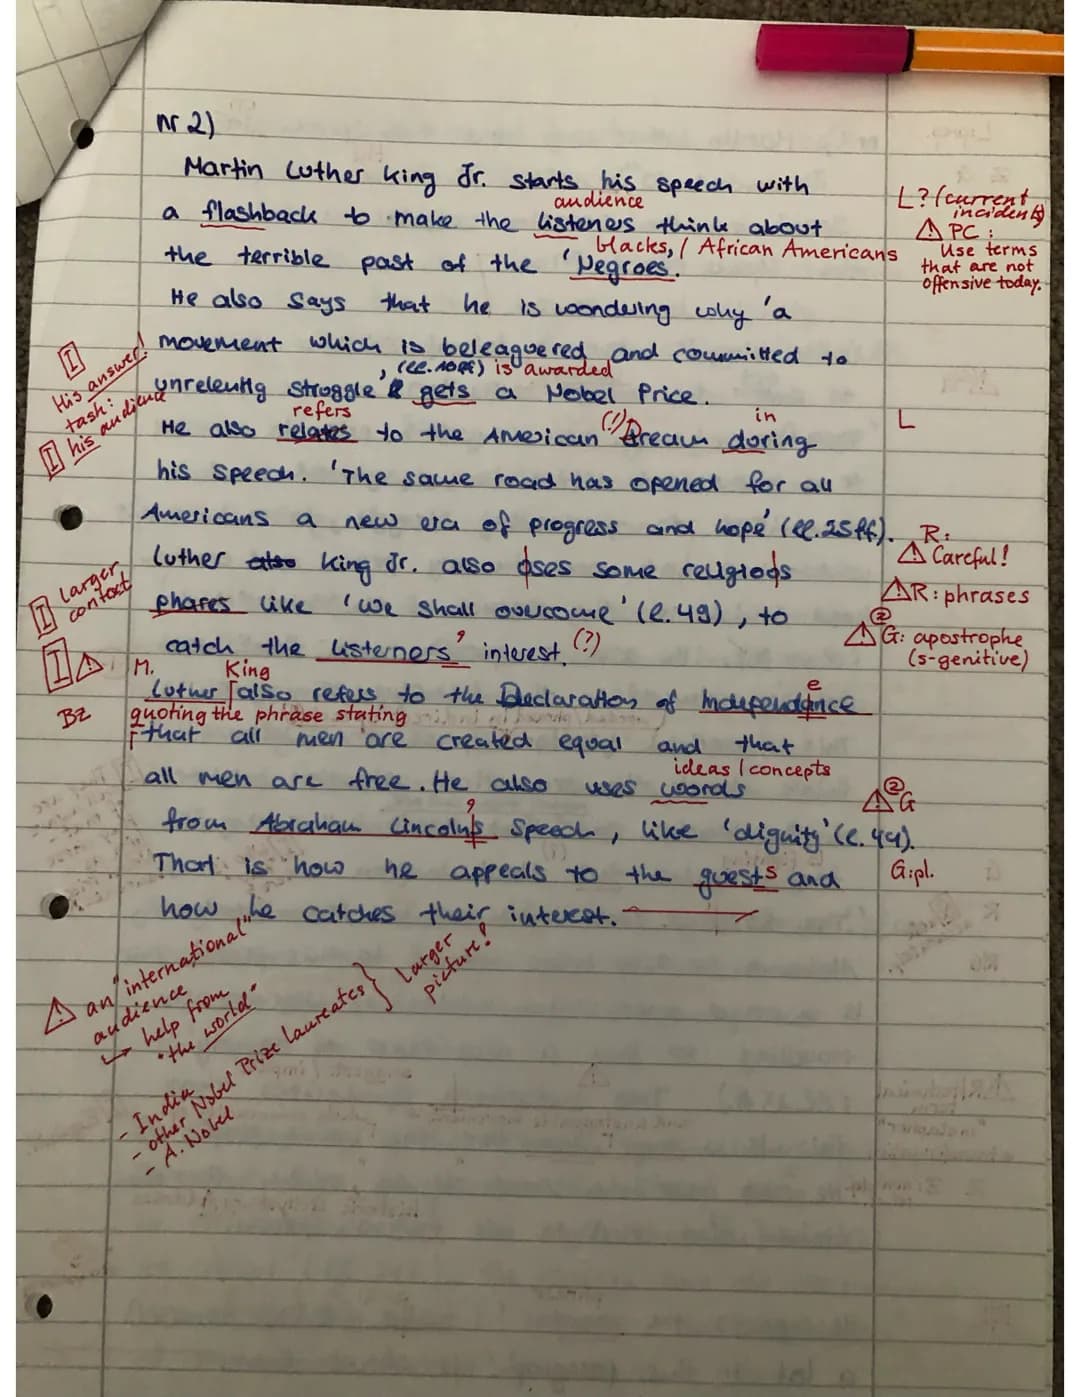 nr 2)
Martin Luther King Jr. starts his speech with
audience
L? (current incidents)
a flashback to make the listeners think about
⚠ PC:
Use terms that are not offensive today.
blacks, / African Americans
the terrible past of the 'Negroes.
He also says that he is wondering why 'a
movement which is beleaguered and committed to
I His answer!
task:
I his audience
, (ll. 10ff) is awarded
unrelentig struggle' gets a Nobel Price.
refers
(!)
in
L
He also relates to the American Dream doring
his speech. 'The same road has opened for all
Americans a new era of progress and hope' (ll. 25ff).
R: ⚠ Careful!
Luther also King Jr. also oses some religiods
I larger context
phares like 'we shall overcome' (l. 49), to
⚠R: phrases
catch the listerners' interest. (?)
② ⚠G: apostrophe (s-genitive)
I ⚠
M. King
Luther also refers to the Declaration of Independance
e
Bz
quoting the phrase stating
that all men are created equal and that
ideas / concepts
all men are free. He also uses words
② ⚠G
from Abraham Lincoln's Speech, like 'dignity' (l. 44).
That is how he appeals to the guests and
G: pl.
how he catches their interest.
⚠ an "international" audience
↳ help from
"the world"
- India
- other Nobel Prize Laureates
- A. Nobel
} Larger picture!